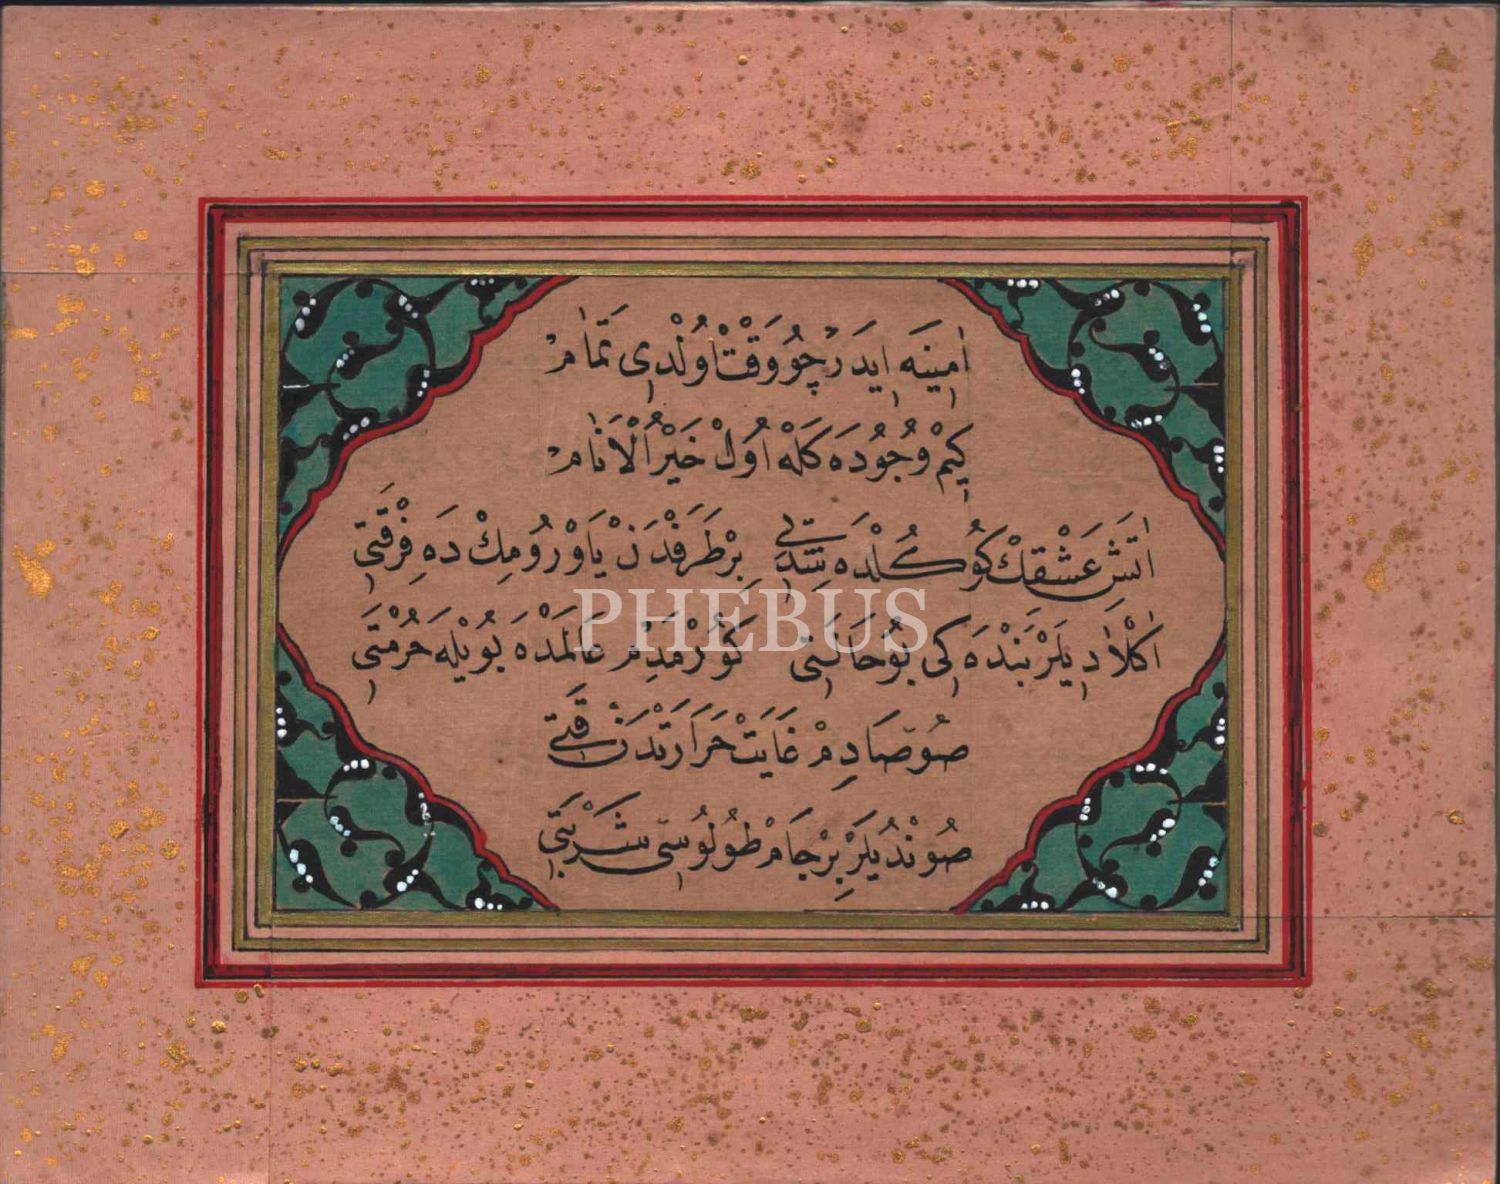 اٰمِينَه اِيدَرْ چُو وَقْتْ اُولْدِى تَمَامْ
كِيمْ وُجُودَه كَلَه اُولْ خَيْرُ الْاَنَامْ
اٰتَشِ عَشْقِكْ كُوكُلْدَه بِتَّدِى بِرْ طَرَفْدَنْ يَاوْرُومِكْ دَه فِرْقَتِى
اَكْلَادِيلَرْ بَنْدَه كِى بُو حَالَتِى كَوُرْمَدِمْ عَالَمْدَه بُويْلَه حُرْمَتِى
صُوصَادِمْ غَايَتْ حَرَارَتْدَنْ قَتِى
صُونْدُيلَرْ بِرْ جَامْ طُولُوسِى شَرْبَتِى
PHEBUS